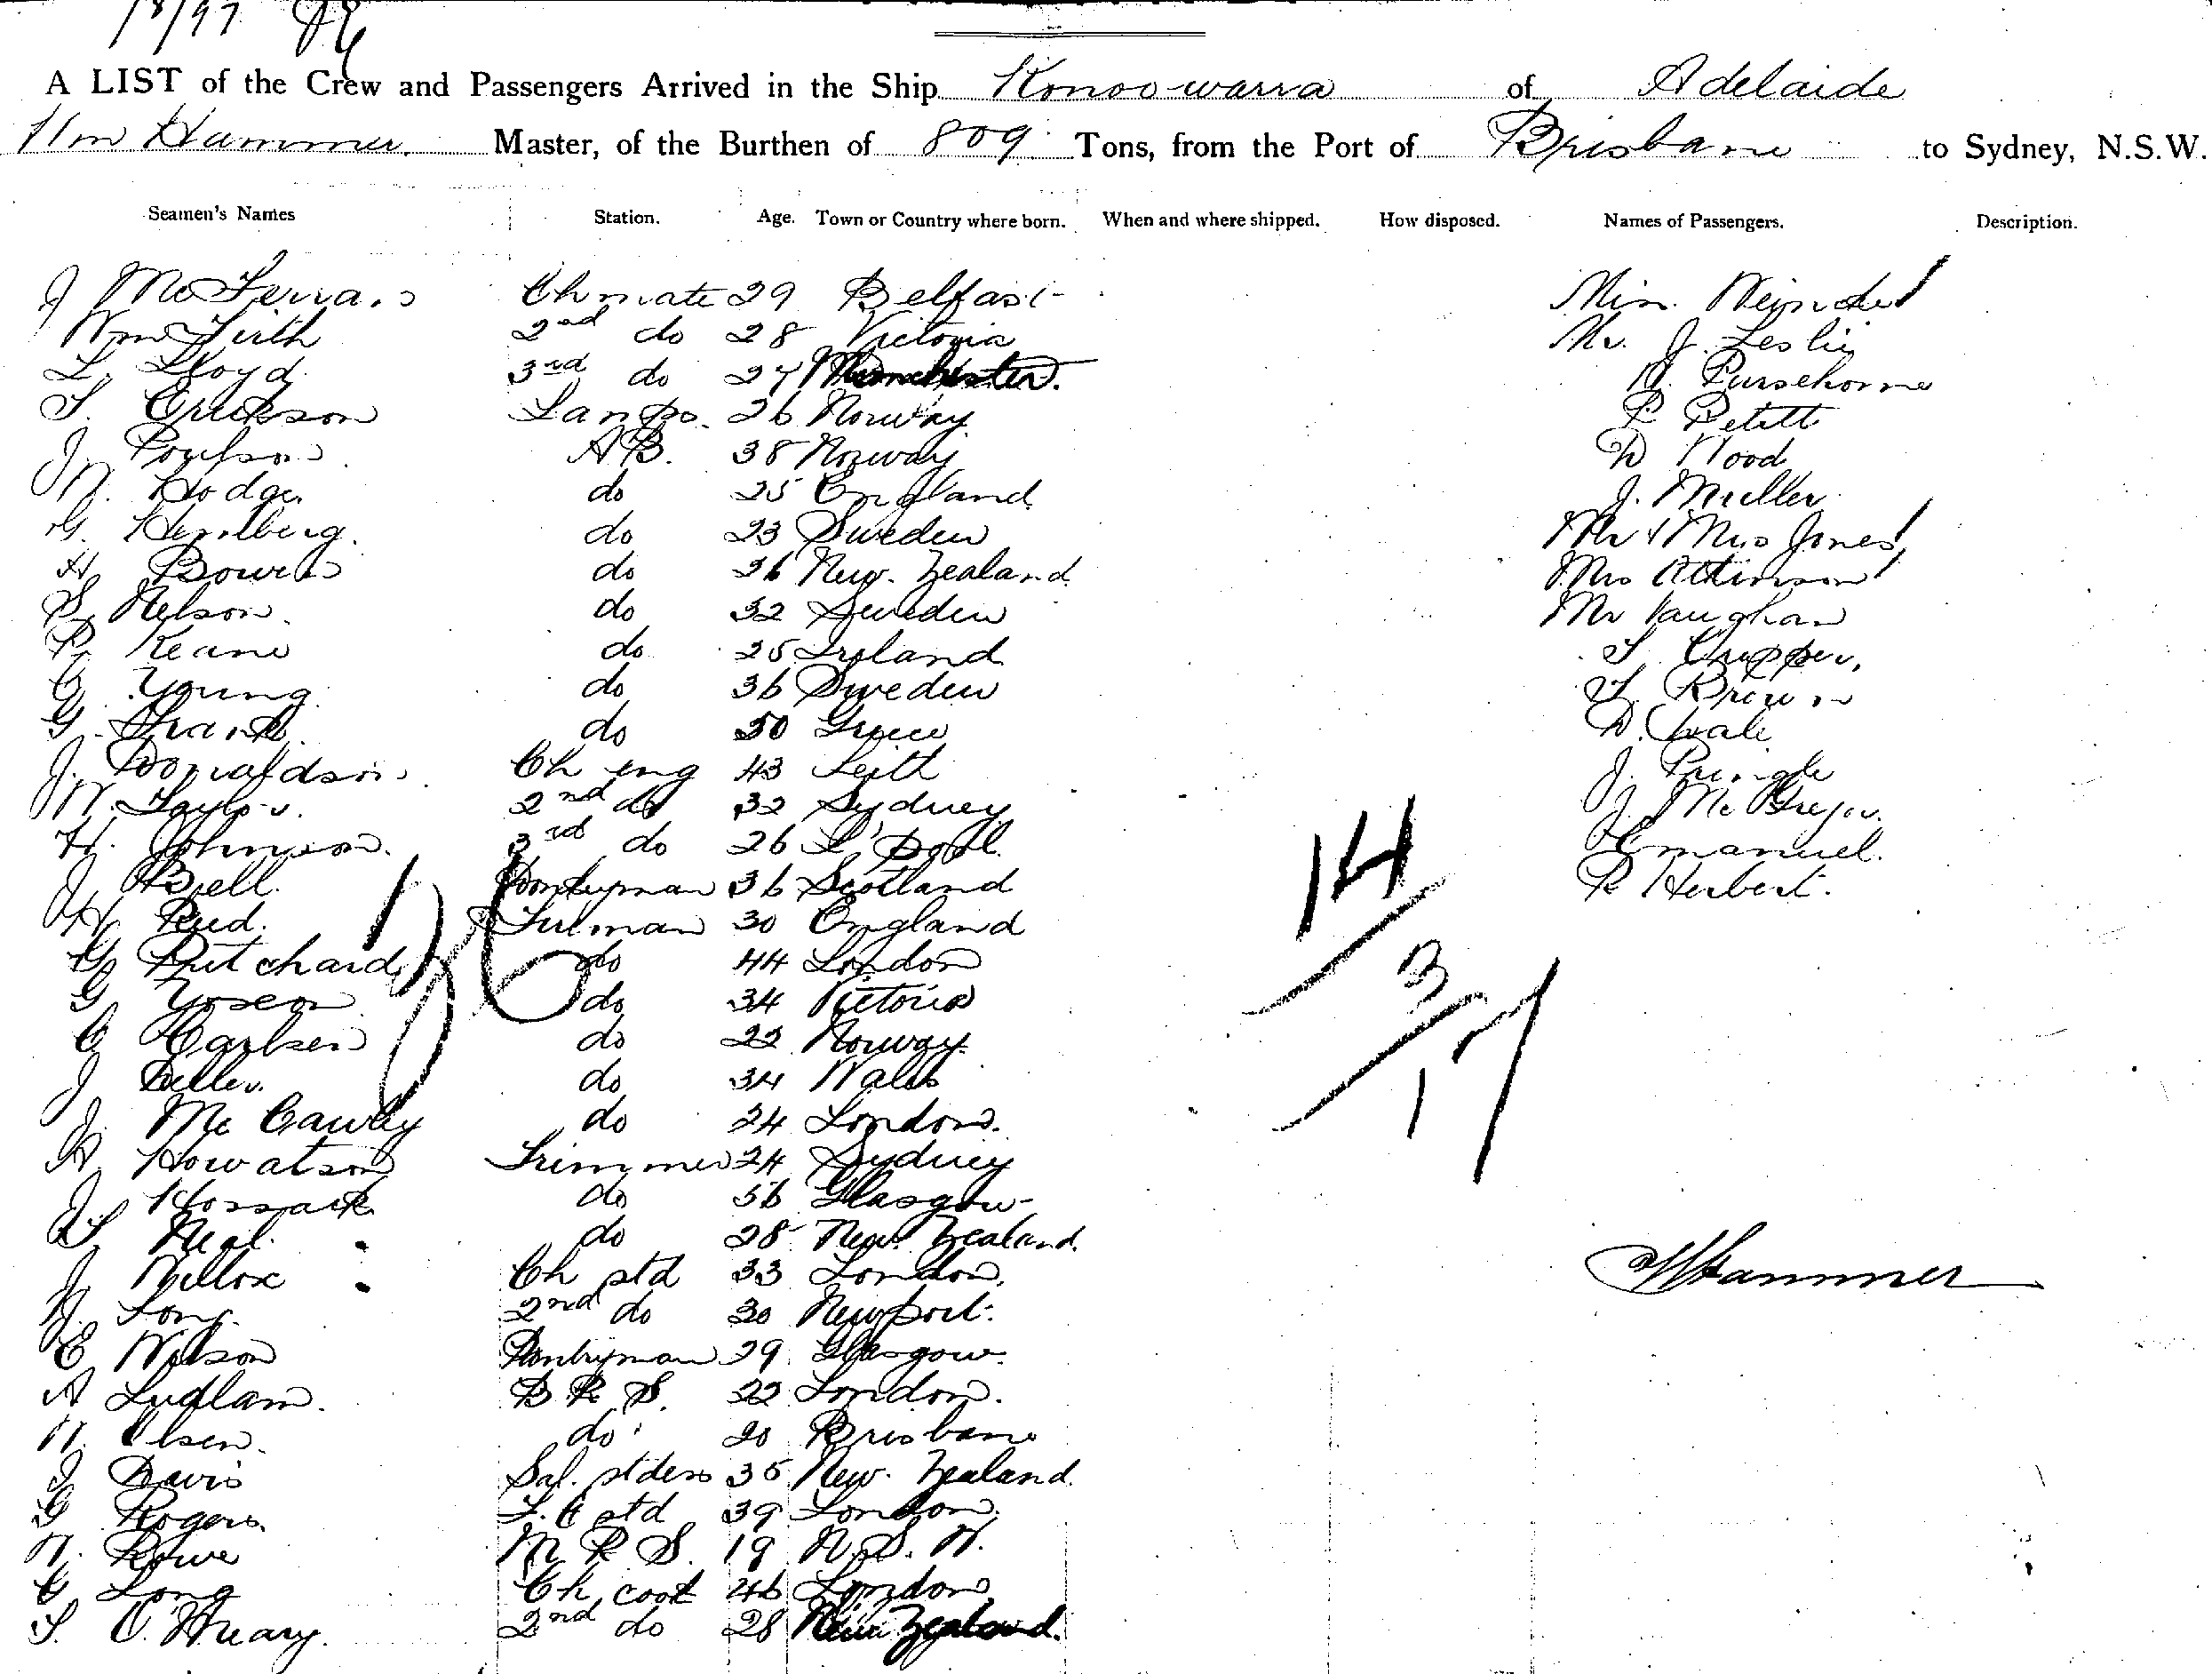 18/97
A LIST of the Crew and Passengers Arrived in the Ship Konoowarra of Adelaide
Wm Hammer. Master, of the Burthen of 809 Tons, from the Port of Brisbane to Sydney, N.S.W.
Seamen's Names Station. Age. Town or Country where born. When and where shipped. How disposed. Names of Passengers. Description.
J McFerran Ch mate 29 Belfast
Wm Firth 2nd do 28 Victoria
L. Lloyd 3rd do 27 Manchester.
T. Erickson Lamps. 26 Norway
J. Poulson AB. 38 Norway
W. Hodge do 25 England
G. do 23 Sweden
H Bowers do 26 New. Zealand.
S. Nelson. do 32 Sweden
P. Keane do 25 Ireland
C. Young do 36 Sweden
G. Frank. do 50 Greece
J. Donaldson. Ch eng 43 Leith
W. Taylor. 2nd do 32 Sydney
H. Johnson. 3rd do 26 L'pool.
J. Bell. Donkeyman 36 Scotland
H Reid. Fireman 30 England
G. Pritchard do 44 London
G do 34 Victoria
C Carlsen do 22 Norway
J do 34 Wales
J. McCawley do 24 London.
A Howatson Trimmer 24 Sydney
J. Hossack do 56 Glasgow
Neal do 28 New Zealand.
J. Ch std 33 London.
Long. 2nd do 30 Newport.
E Wilson Pantryman 29. Glasgow.
A Ludlam. B R S. 22 London.
W. Olsen. do 20 Brisbane
J Davis Sal. stdess 35 New. Zealand.
G Rogers. F.C std 39 London.
W. Rowe M R S. 19 N.S.W.
G Long Ch cook 46 London
T. O'Neary. 2nd do 28 New Zealand.
Miss
Mr. J. Leslie
W. Pursehorne
P. Petitt
D Wood
J. Muller
Mr & Mrs Jones
Mrs Atkinson
Mr Vaughan
T. Cripper.
T. Brown
D. Wale
J. Pringle
J. McGregor.
Emanuel.
R Herbert.
14
3
17
36
WHammer